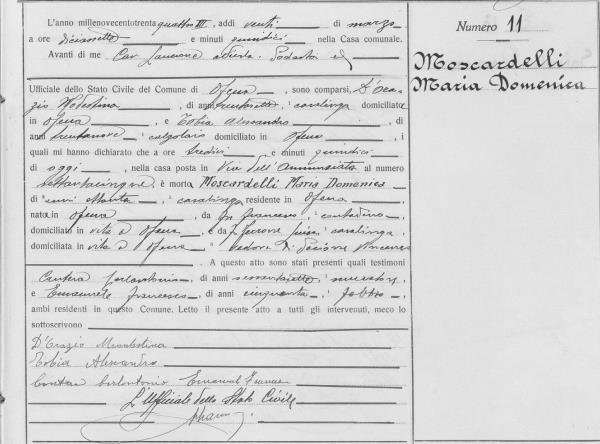 L'anno millenovecentotrenta quattro XII, addì venti di marzo
a ore diciassette e minuti quindici nella Casa comunale.
Avanti di me Cav. Podestà ed
Ufficiale dello Stato Civile del Comune di Ofena, sono comparsi, D'Ora-
zio, di anni casalinga domiciliato
in Ofena e Tobia Alessandro, di
anni trentanove calzolaio domiciliato in Ofena, i
quali mi hanno dichiarato che a ore tredici e minuti quindici
di oggi, nella casa posta in Via dell'Annunziata al numero
settantacinque, è morta Moscardelli Maria Domenica
di anni ottanta casalinga residente in Ofena,
nata in Ofena, da fu Francesco, contadino
domiciliato in vita a Ofena e da casalinga
domiciliata in vita a Ofena vedova Di
A questo atto sono stati presenti quali testimoni
di anni
e Emanuele Francesco, di anni cinquanta, fabbro,
ambi residenti in questo Comune. Letto il presente atto a tutti gli intervenuti, meco lo
sottoscrivono
D'Orazio
Tobia Alessandro
Emanuel
L'Ufficiale dello Stato Civile
Numero 11
Moscardelli
Maria Domenica